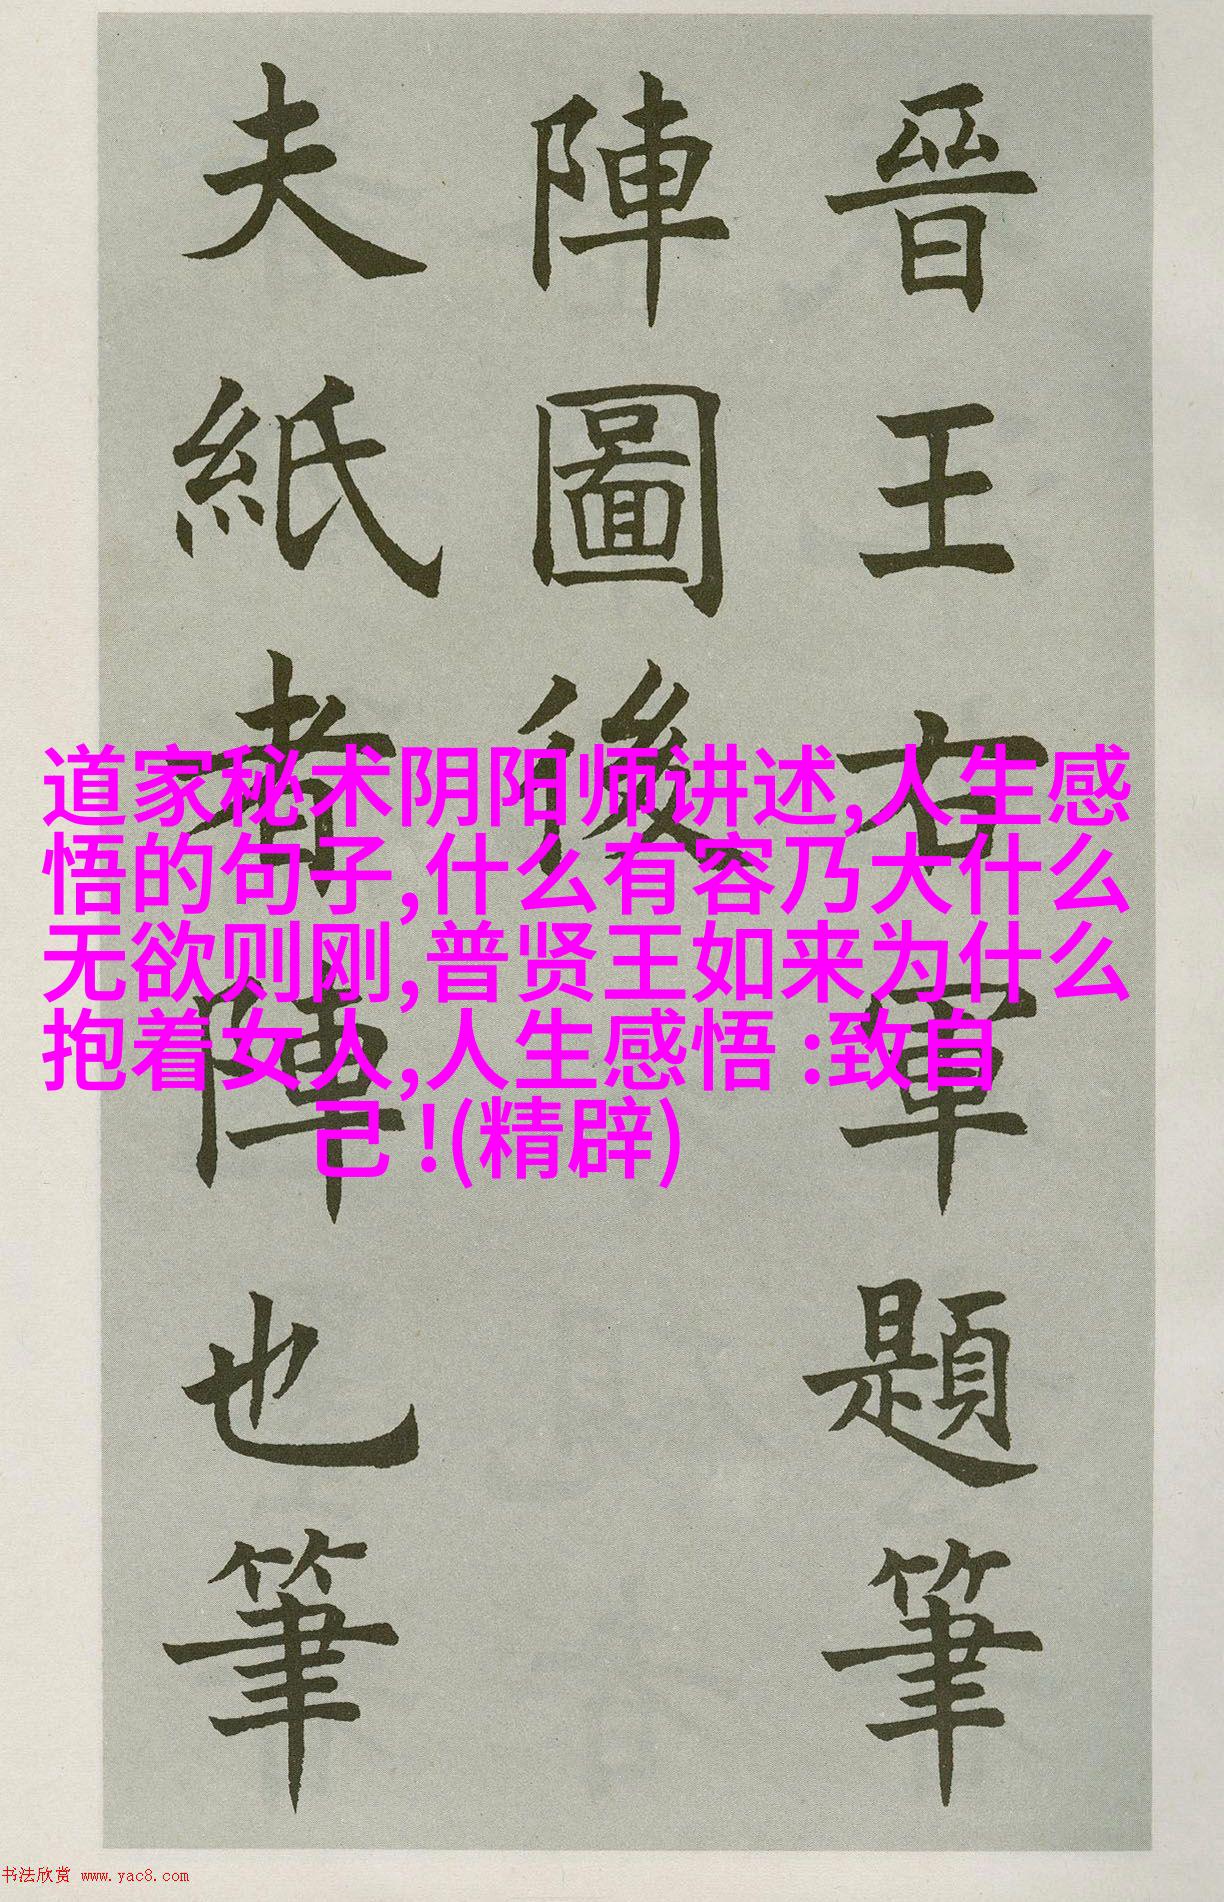 晉王右軍題筆
陣圖後
夫紙者陣也筆
道家秘术阴阳师讲述,人生感
悟的句子,什么有容乃大什么
无欲则刚,普贤王如来为什么
抱着女人,人生感悟 :致自
己 !(精辟)
书法欣赏 www.yac8.com